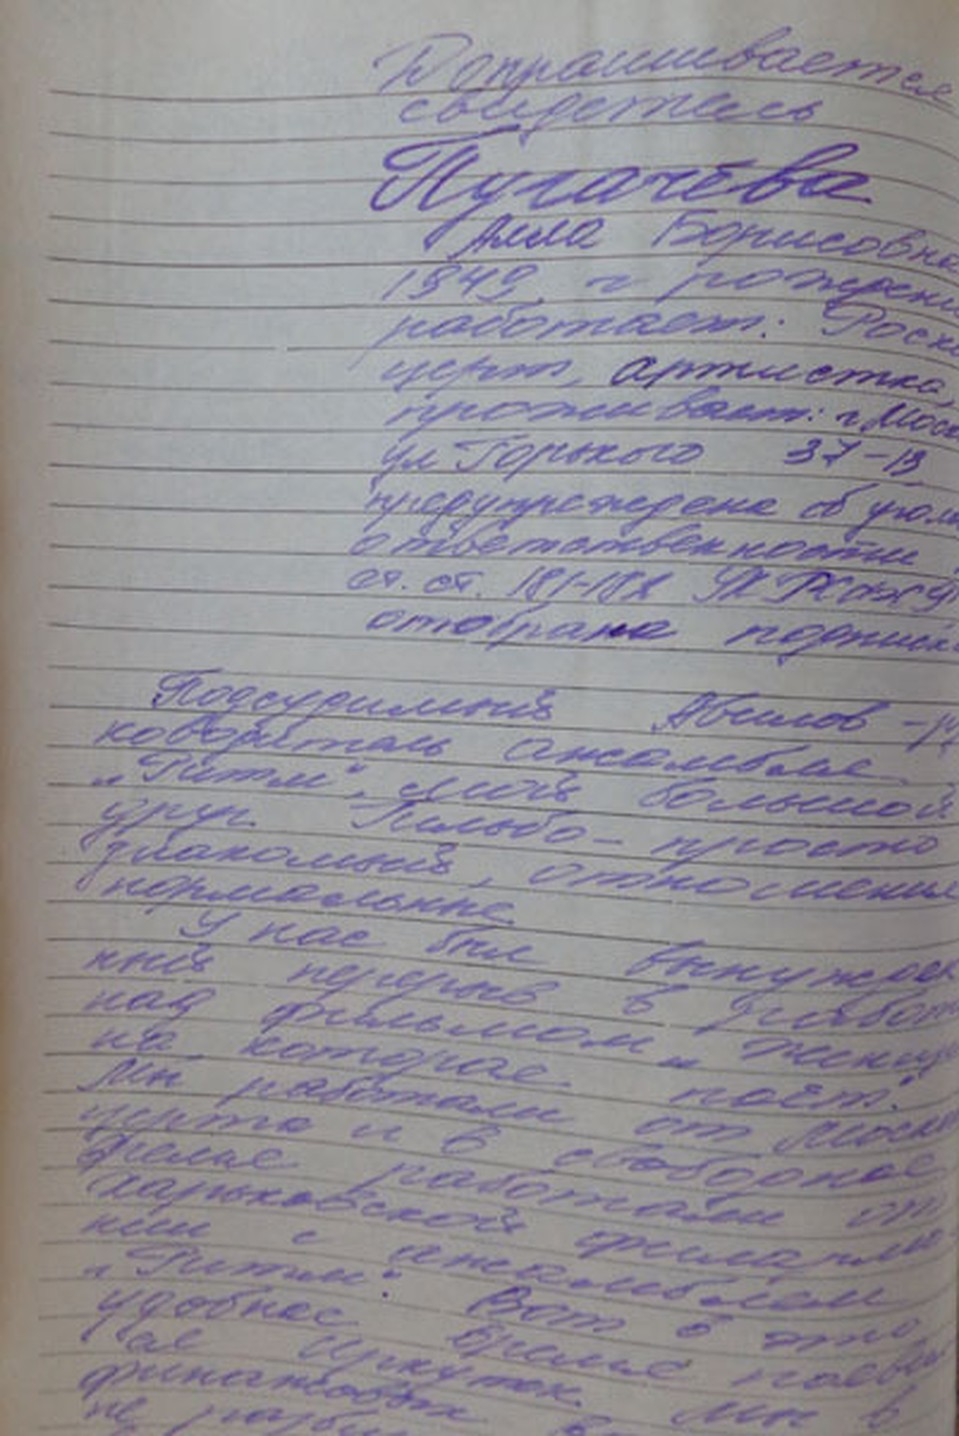 Допрашивается
свидетель
Пугачёва
Алла Борисовна
1949 г рождени
работает: Роскон
церт, артистка,
проживает: г. Моск
ул Горького 37-13
предупреждена об уголо
ответственности
ст. ст. 181-182 УК РСФСР
отобрана подписк
Подсудимый Авилов - ру
ководитель ансамбля
"Ритм", мой большой
друг. Пильбо - просто
знакомый, отношения
нормальные.
У нас был вынужден
ный перерыв в работе
над фильмом "Женщи
на, которая поёт."
Мы работали от Москон
церта и в свободное
время работали от
Харьковской филармо
нии с ансамблем
"Ритм". Вот в это
удобное время появи
ся Иркутск. Мы в
финансовых
не